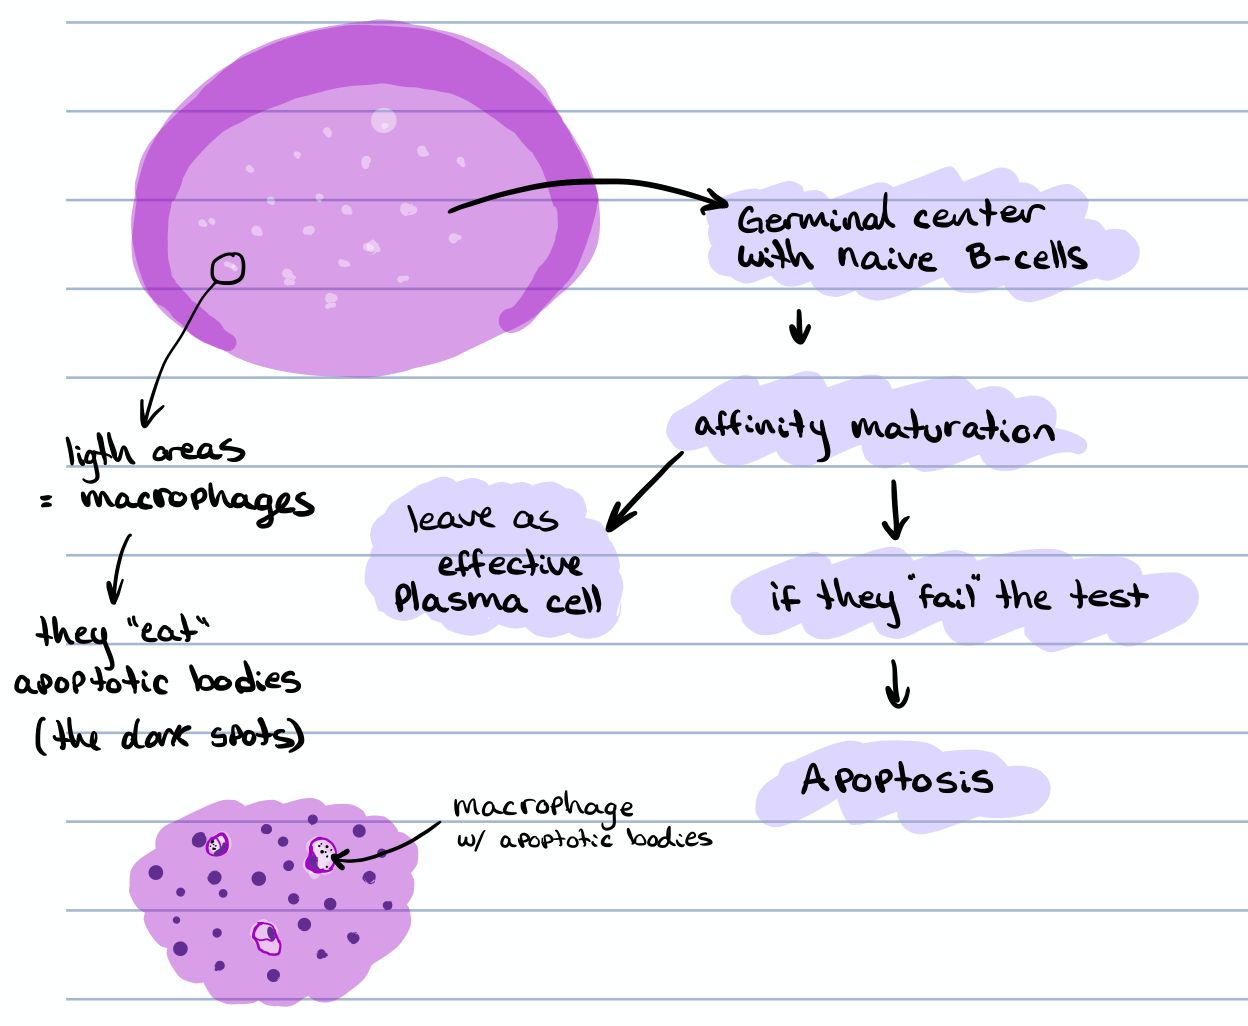 Germinal center
with naive B-cells
affinity maturation
leave as
effective
Plasma cell
if they "fail" the test
Apoptosis
ligth areas
= macrophages
they "eat"
apoptotic bodies
(the dark spots)
macrophage
w/ apoptotic bodies